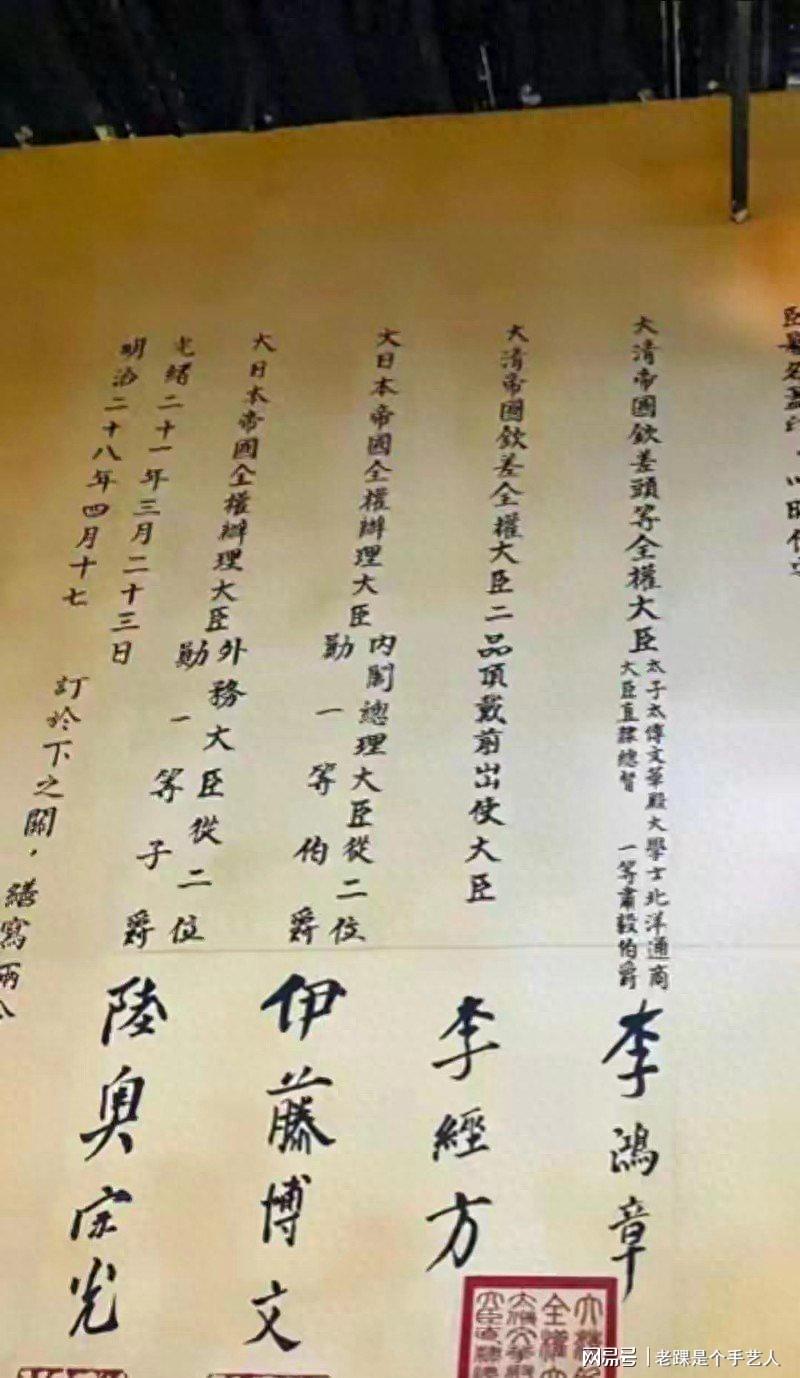 大清帝國欽差頭等全權大臣
太子太傅文華殿大學士北洋通商
大臣直隸總督 一等肅毅伯爵
李鴻章
大清帝國欽差全權大臣二品頂戴前出使大臣
李經方
大日本帝國全權辦理大臣
內閣總理大臣從二位
勳一等伯爵
伊藤博文
大日本帝國全權辦理大臣
外務大臣從二位
勳一等子爵
陸奧宗光
光緒二十一年三月二十三日
明治二十八年四月十七
訂於下之關，繕寫兩
網易號 | 老踝是个手艺人